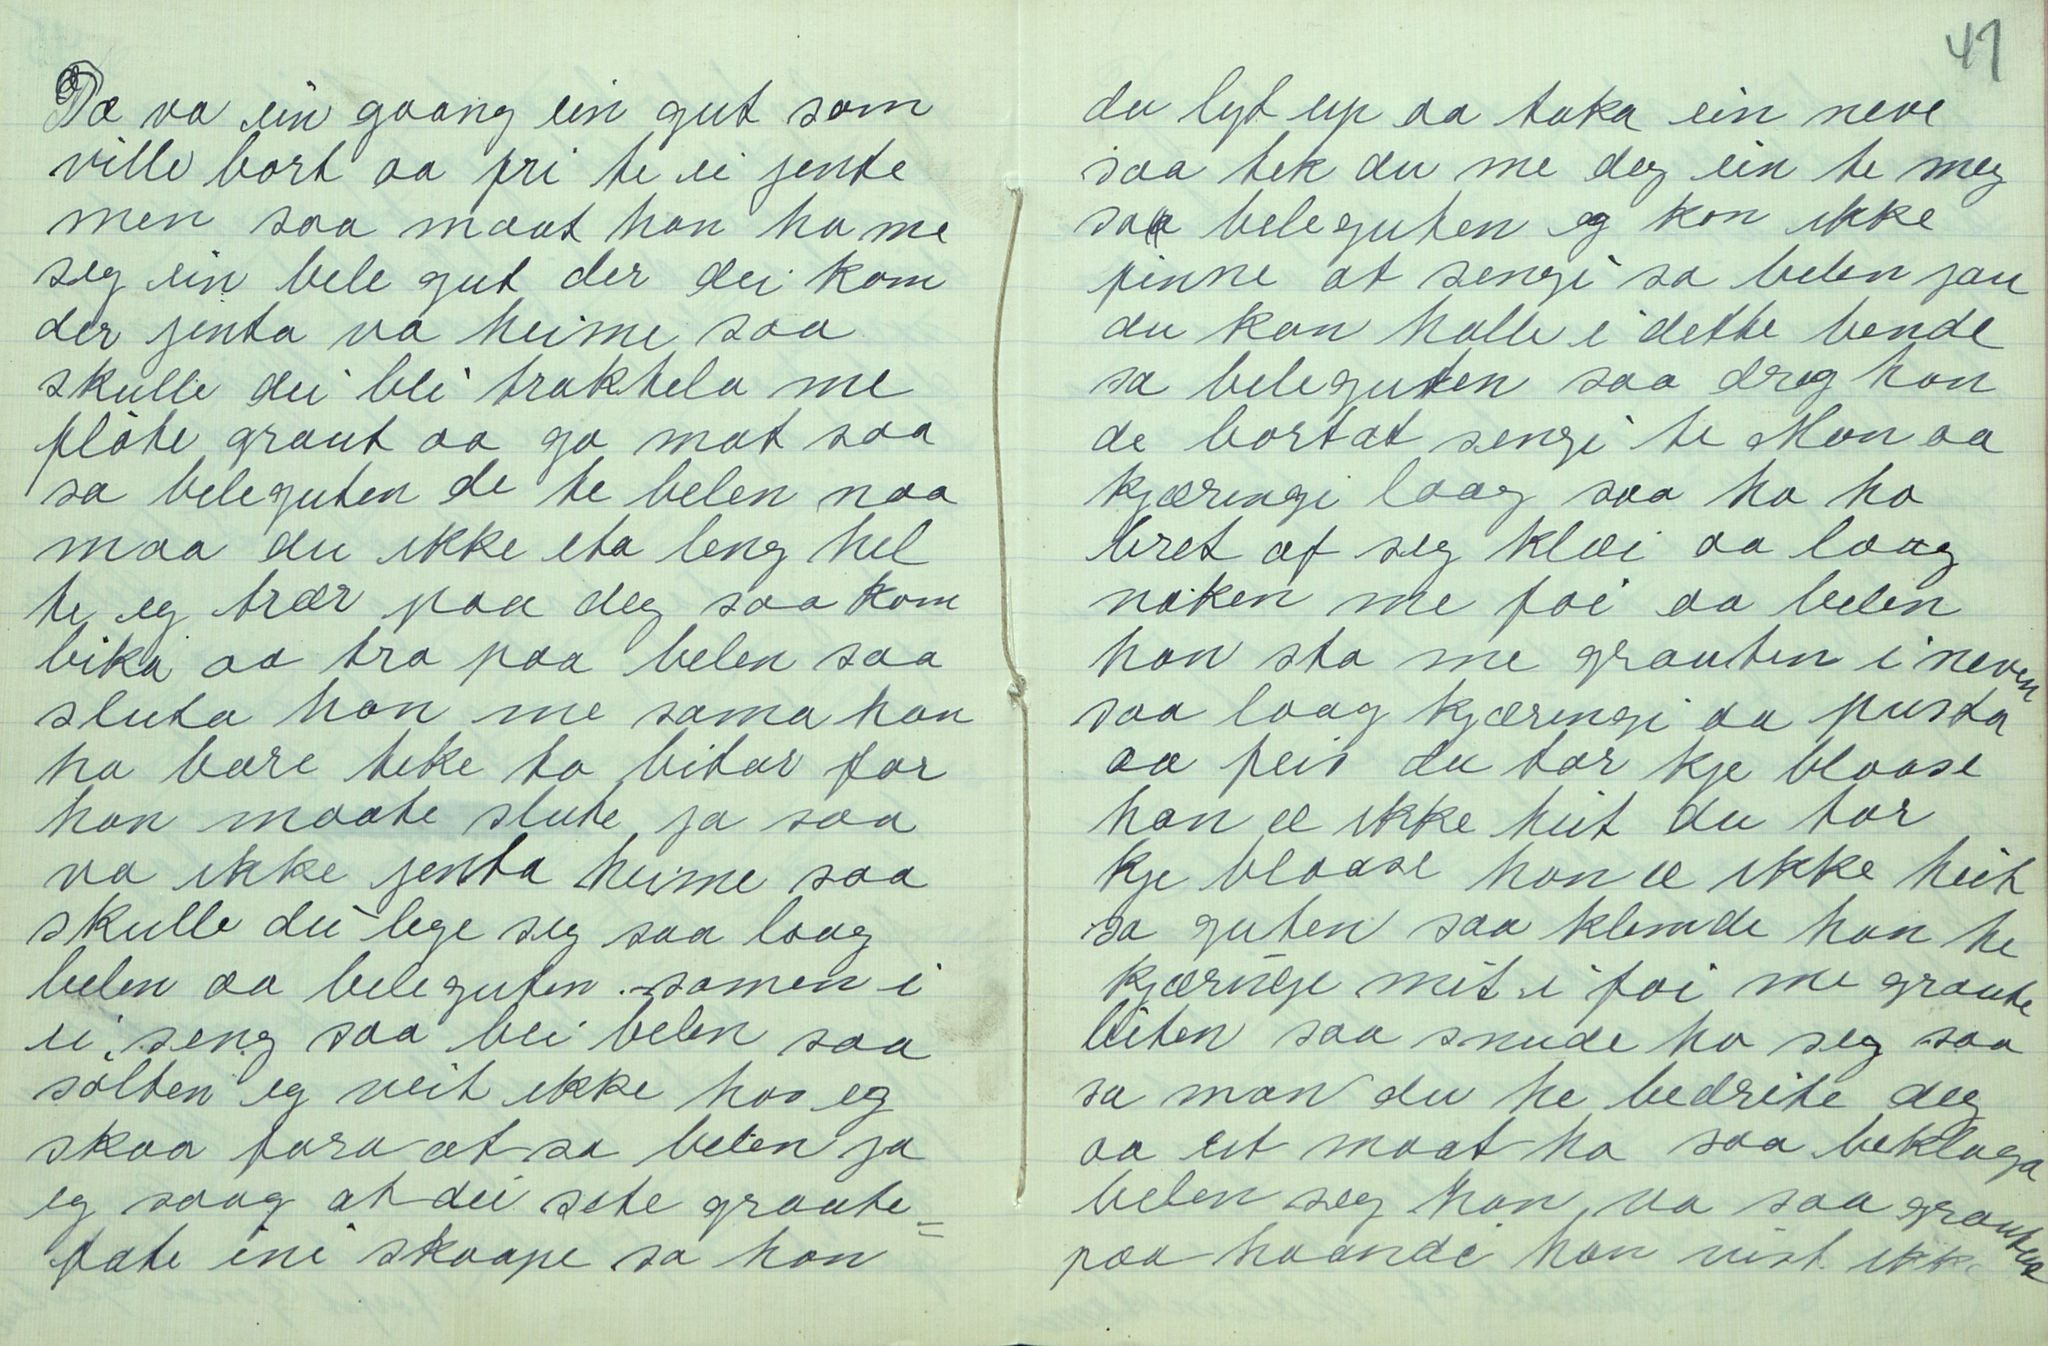 Dæ va ein gaang ein gut som
ville bort aa fri te ei jente
men saa maat han ha me
seg ein bele gut der dei kom
der jenta va heime saa
skulle dei bli traktela me
fløte graut aa go mat saa
sa beleguten de te belen naa
maa du ikke eta leng hel
te eg trær paa deg saa kom
bika aa tra paa belen saa
sluta han me sama han
ha bare teke to bitar før
han maate slute ja saa
va ikke jenta heime saa
skulle dei lege seg saa laag
belen aa beleguten samen i
ei seng saa blei belen saa
sølten eg veit ikke hos eg
skaa fara at sa belen ja
eg saag at dei sete graute=
fate ini skaape sa han
41
du lyt up aa taka ein neve
saa tek du me deg ein te meg
saa beleguten eg kan ikke
finne at sengi sa belen jau
du kan halle i dette bende
sa beleguten saa drog han
de bortat sengi te Man aa
kjæringi laag saa ha ho
bret af seg klæi aa laag
naken me foi aa belen
han sta me grauten i neven
saa laag kjæringi aa pusta
aa feis du tar kje blaase
han æ ikke heit du tar
kje blaase han æ ikke heit
sa guten saa klemde han te
kjæringe mit i foi me graute
biten saa snude ho seg saa
sa man du he bedrite deg
aa ut maat ho saa beklaga
belen seg han va saa grauten
paa haandi han vist ikke